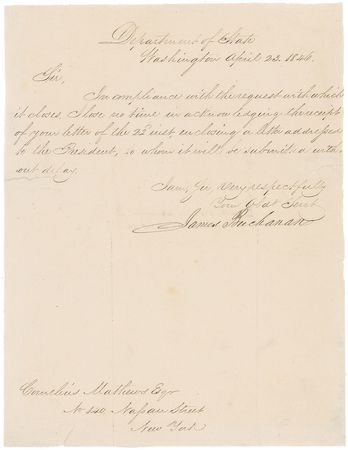 Department of State
Washington April 23. 1846.
Sir,
In compliance with the request with which
it closes, I lose no time in acknowledging the receipt
of your letter of the 22 inst, enclosing a letter addressed
to the President, to whom it will be submitted with-
out delay.
I am, Sir, very respectfully
Your Obdt Servt
James Buchanan
Cornelius Mathews Esqr
Nassau Street
New York